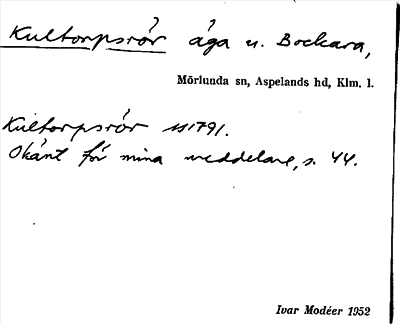 Kultorpsrör äga u. Bockara,
Mörlunda sn, Aspelands hd, Klm. l.
Kultorpsrör 1791.
Okänt för mina meddelare, s. 44.
Ivar Modéer 1952